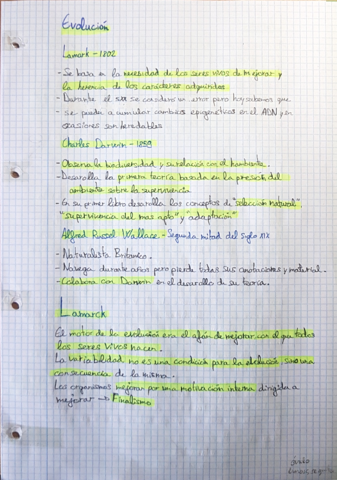 Evolución
Lamark - 1802
- Se basa en la necesidad de los seres vivos de mejorar y
la herencia de los caracteres adquiridos
- Durante el se considero un error pero hoy sabemos que
- se pueden acumular cambios epigenéticos en el ADN y en
ocasiones son heredables
Charles Darwin - 1859
- Observa la biodiversidad y su relación con el ambiente.
- Desarrolla la primera teoría basada en la presión del
ambiente sobre la supervivencia.
- En su primer libro desarrolla los conceptos de "selección natural",
"supervivencia del mas apto" y "adaptación"
Alfred Russel Wallace - Segunda mitad del siglo XIX
- Naturalista Británico.
- Navega durante años pero pierde todas sus anotaciones y material.
- Colabora con Darwin en el desarollo de su teoría.
Lamarck
El motor de la evolución era el afán de mejorar con el que todos
los seres vivos nacen.
La variabilidad no es una condición para la evolución, sino una
consecuencia de la misma.
Los organismos mejoran por una motivación interna dirigida a
mejorar → Finalismo